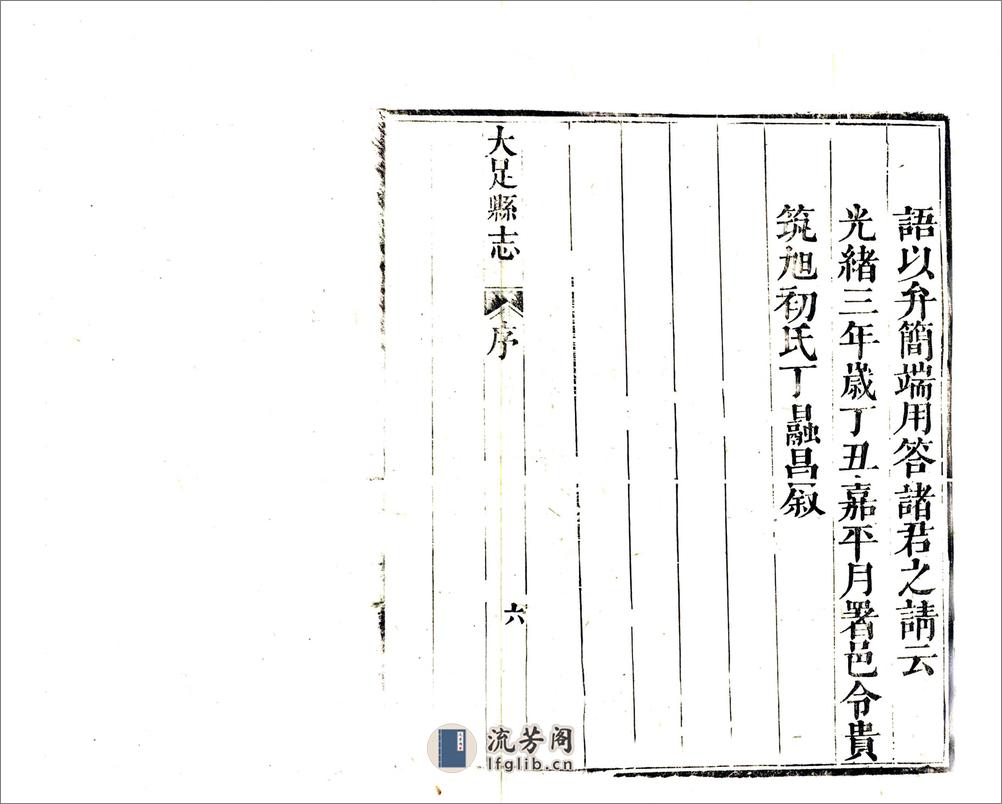 語以弁簡端用答諸君之請云
光緒三年歲丁丑嘉平月署邑令貴
筑旭初氏丁昌叙
大足縣志 序 六
流芳阁
lfglib.cn